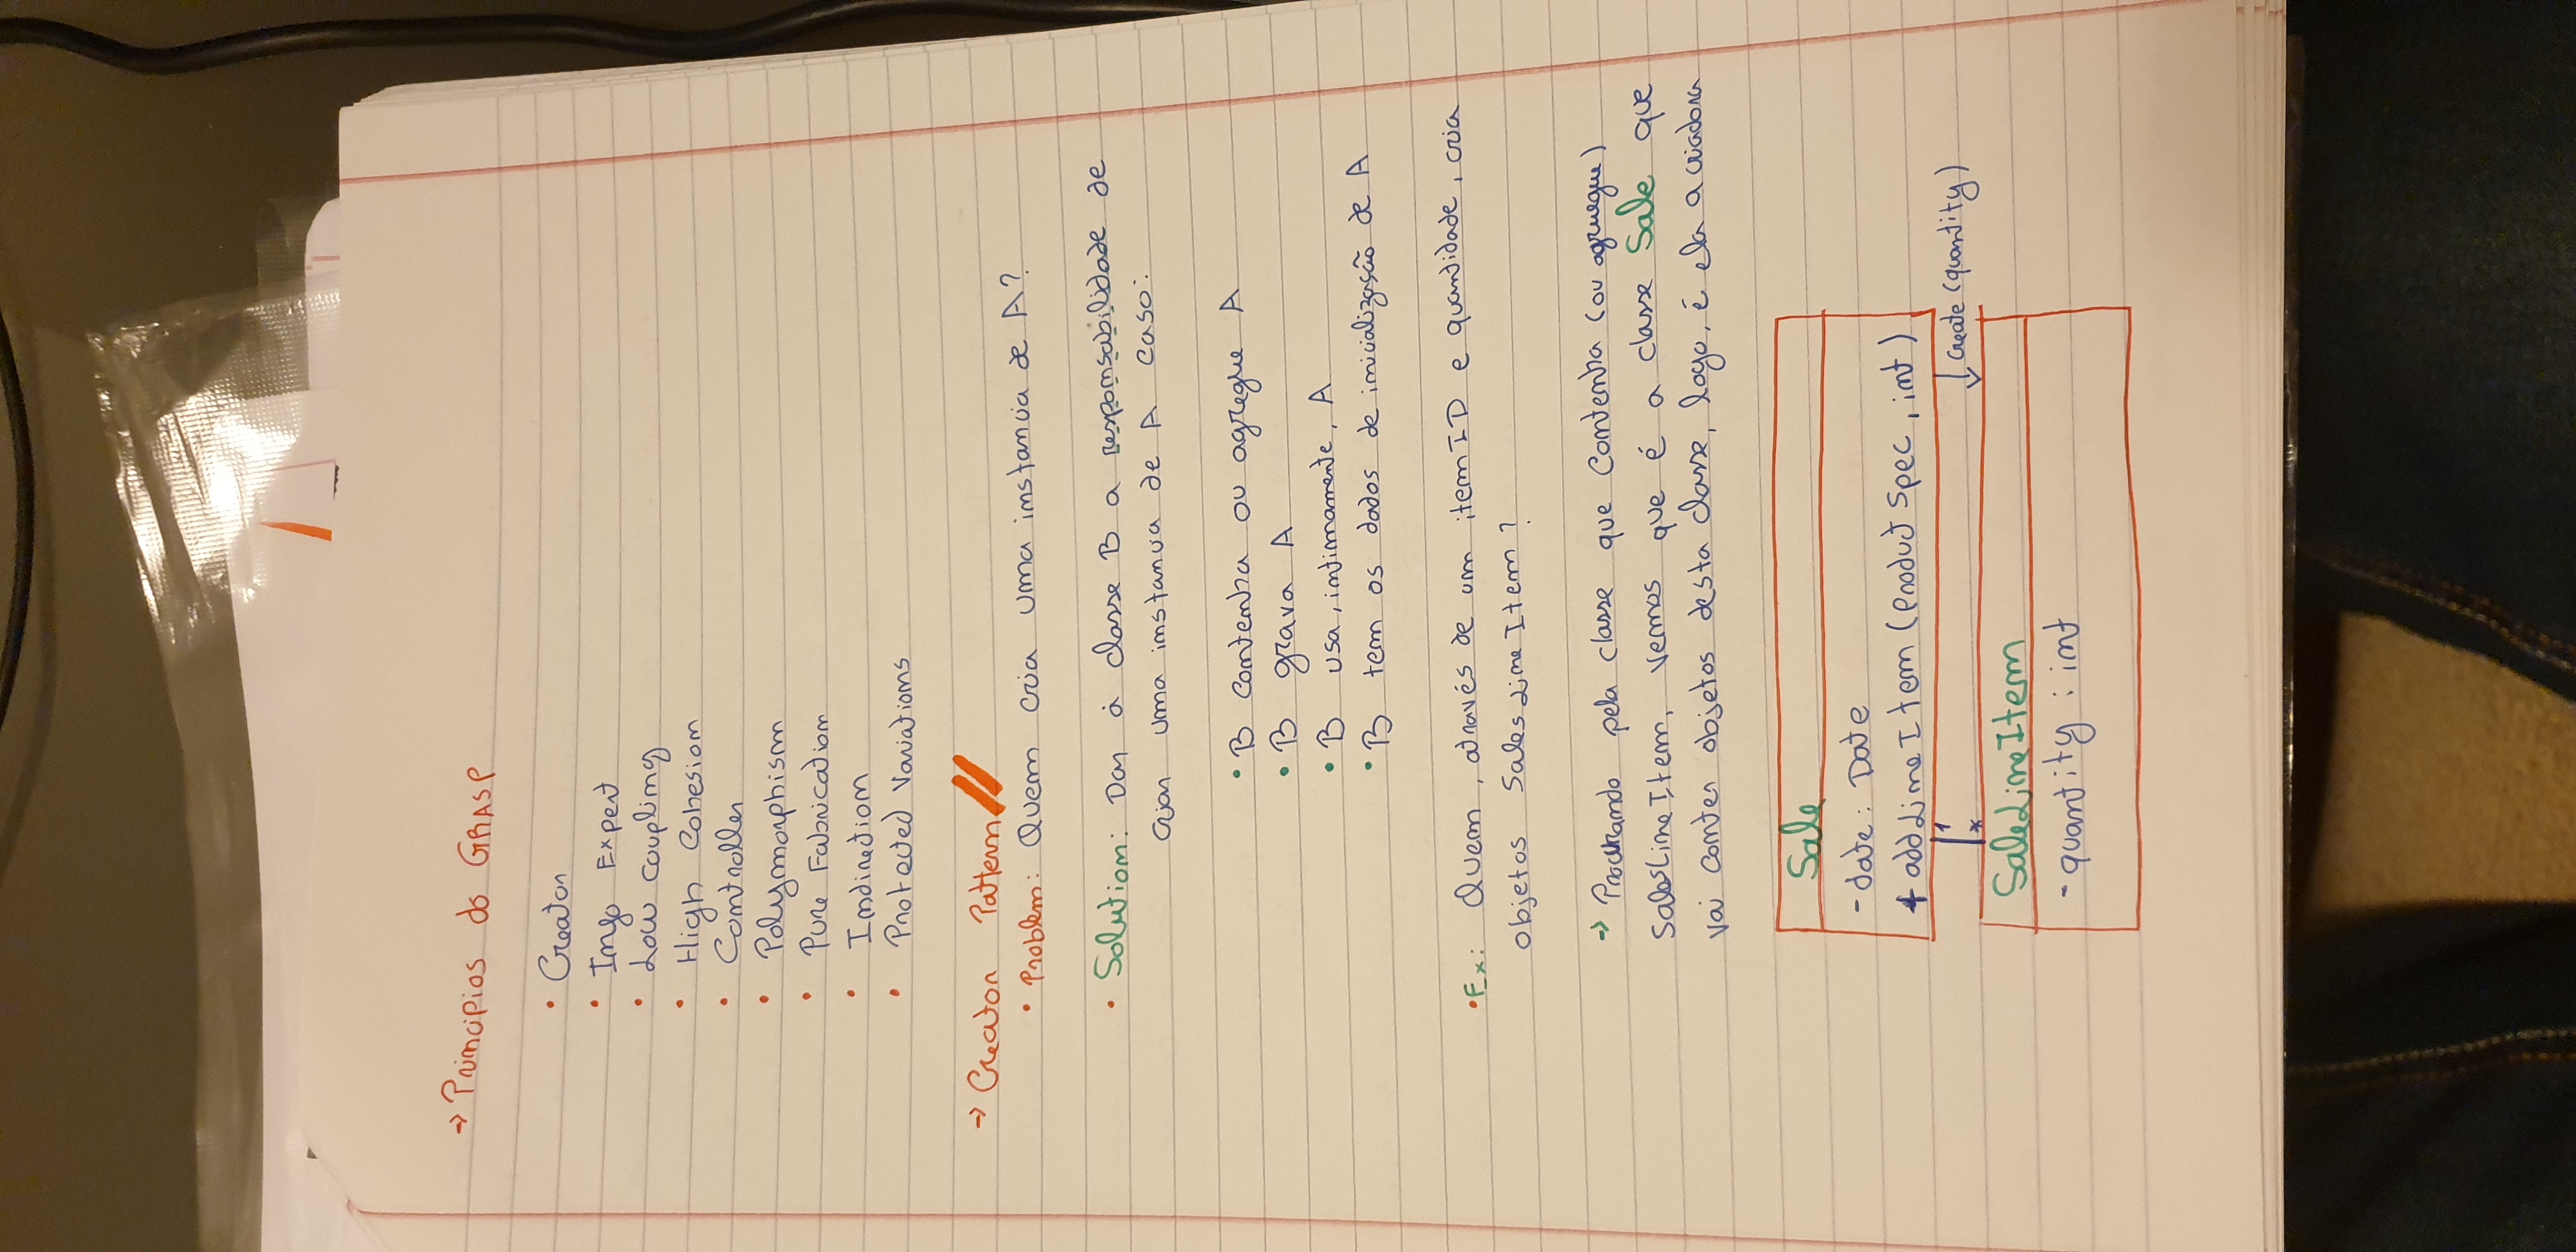 → Principios do GRASP
• Creator
• Info Expert
• Low coupling
• High Cohesion
• Controller
• Polymorphism
• Pure Fabrication
• Indirection
• Protected Variations
→ Creator Pattern
• Problem: Quem cria uma instancia de A?
• Solution: Dar à classe B a responsabilidade de
criar uma instancia de A caso:
• B contenha ou agregue A
• B grava A
• B usa, intimamente, A
• B tem os dados de inicialização de A
• Ex: Quem, através de um itemID e quantidade, cria
objetos SalesLineItem?
→ Procurando pela classe que contenha (ou agruegue)
SalesLineItem, vermos que é a classe Sale que
vai conter objetos desta classe, logo, é ela a criadora
Sale
- date: Date
+ addLineItem (Product Spec, int)
1
* create (quantity)
SaleLineItem
- quantity : int